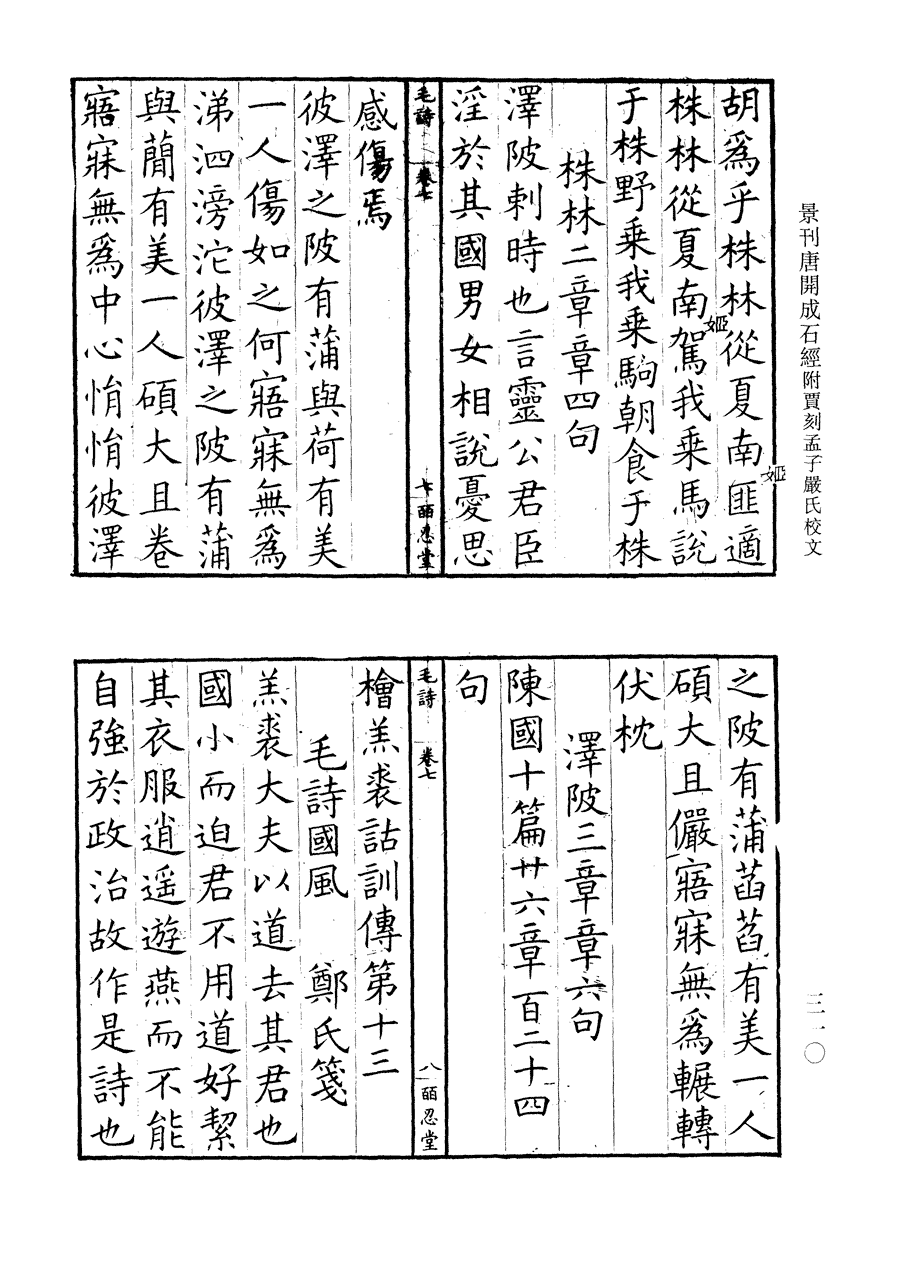 景刊唐開成石經附賈刻孟子嚴氏校文
三一〇
胡爲乎株林從夏南匪適
姬
株林從夏南駕我乗馬說
姬
于株野乗我乗駒朝食于株
株林二章章四句
澤陂刺時也言靈公君臣
淫於其國男女相說憂思
毛詩 卷七 七 皕忍堂
感傷焉
彼澤之陂有蒲與荷有美
一人傷如之何寤寐無爲
涕泗滂沱彼澤之陂有蒲
與蕑有美一人碩大且卷
寤寐無爲中心悁悁彼澤
之陂有蒲菡萏有美一人
碩大且儼寤寐無爲輾轉
伏枕
澤陂三章章六句
陳國十篇廿六章百二十四
句
毛詩 卷七 八 皕忍堂
檜羔裘詁訓傳第十三
毛詩國風 鄭氏箋
羔裘大夫以道去其君也
國小而迫君不用道好絜
其衣服逍遥遊燕而不能
自強於政治故作是詩也